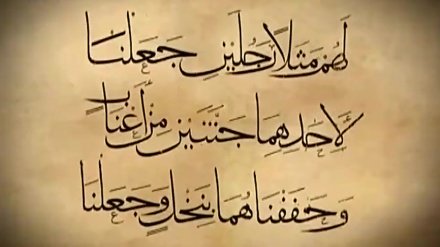 لَهُمْ مَثَلًا رَجُلَيْنِ جَعَلْنَا
لِأَحَدِهِمَا جَنَّتَيْنِ مِنْ أَعْنَابٍ
وَحَفَفْنَاهُمَا بِنَخْلٍ وَجَعَلْنَا